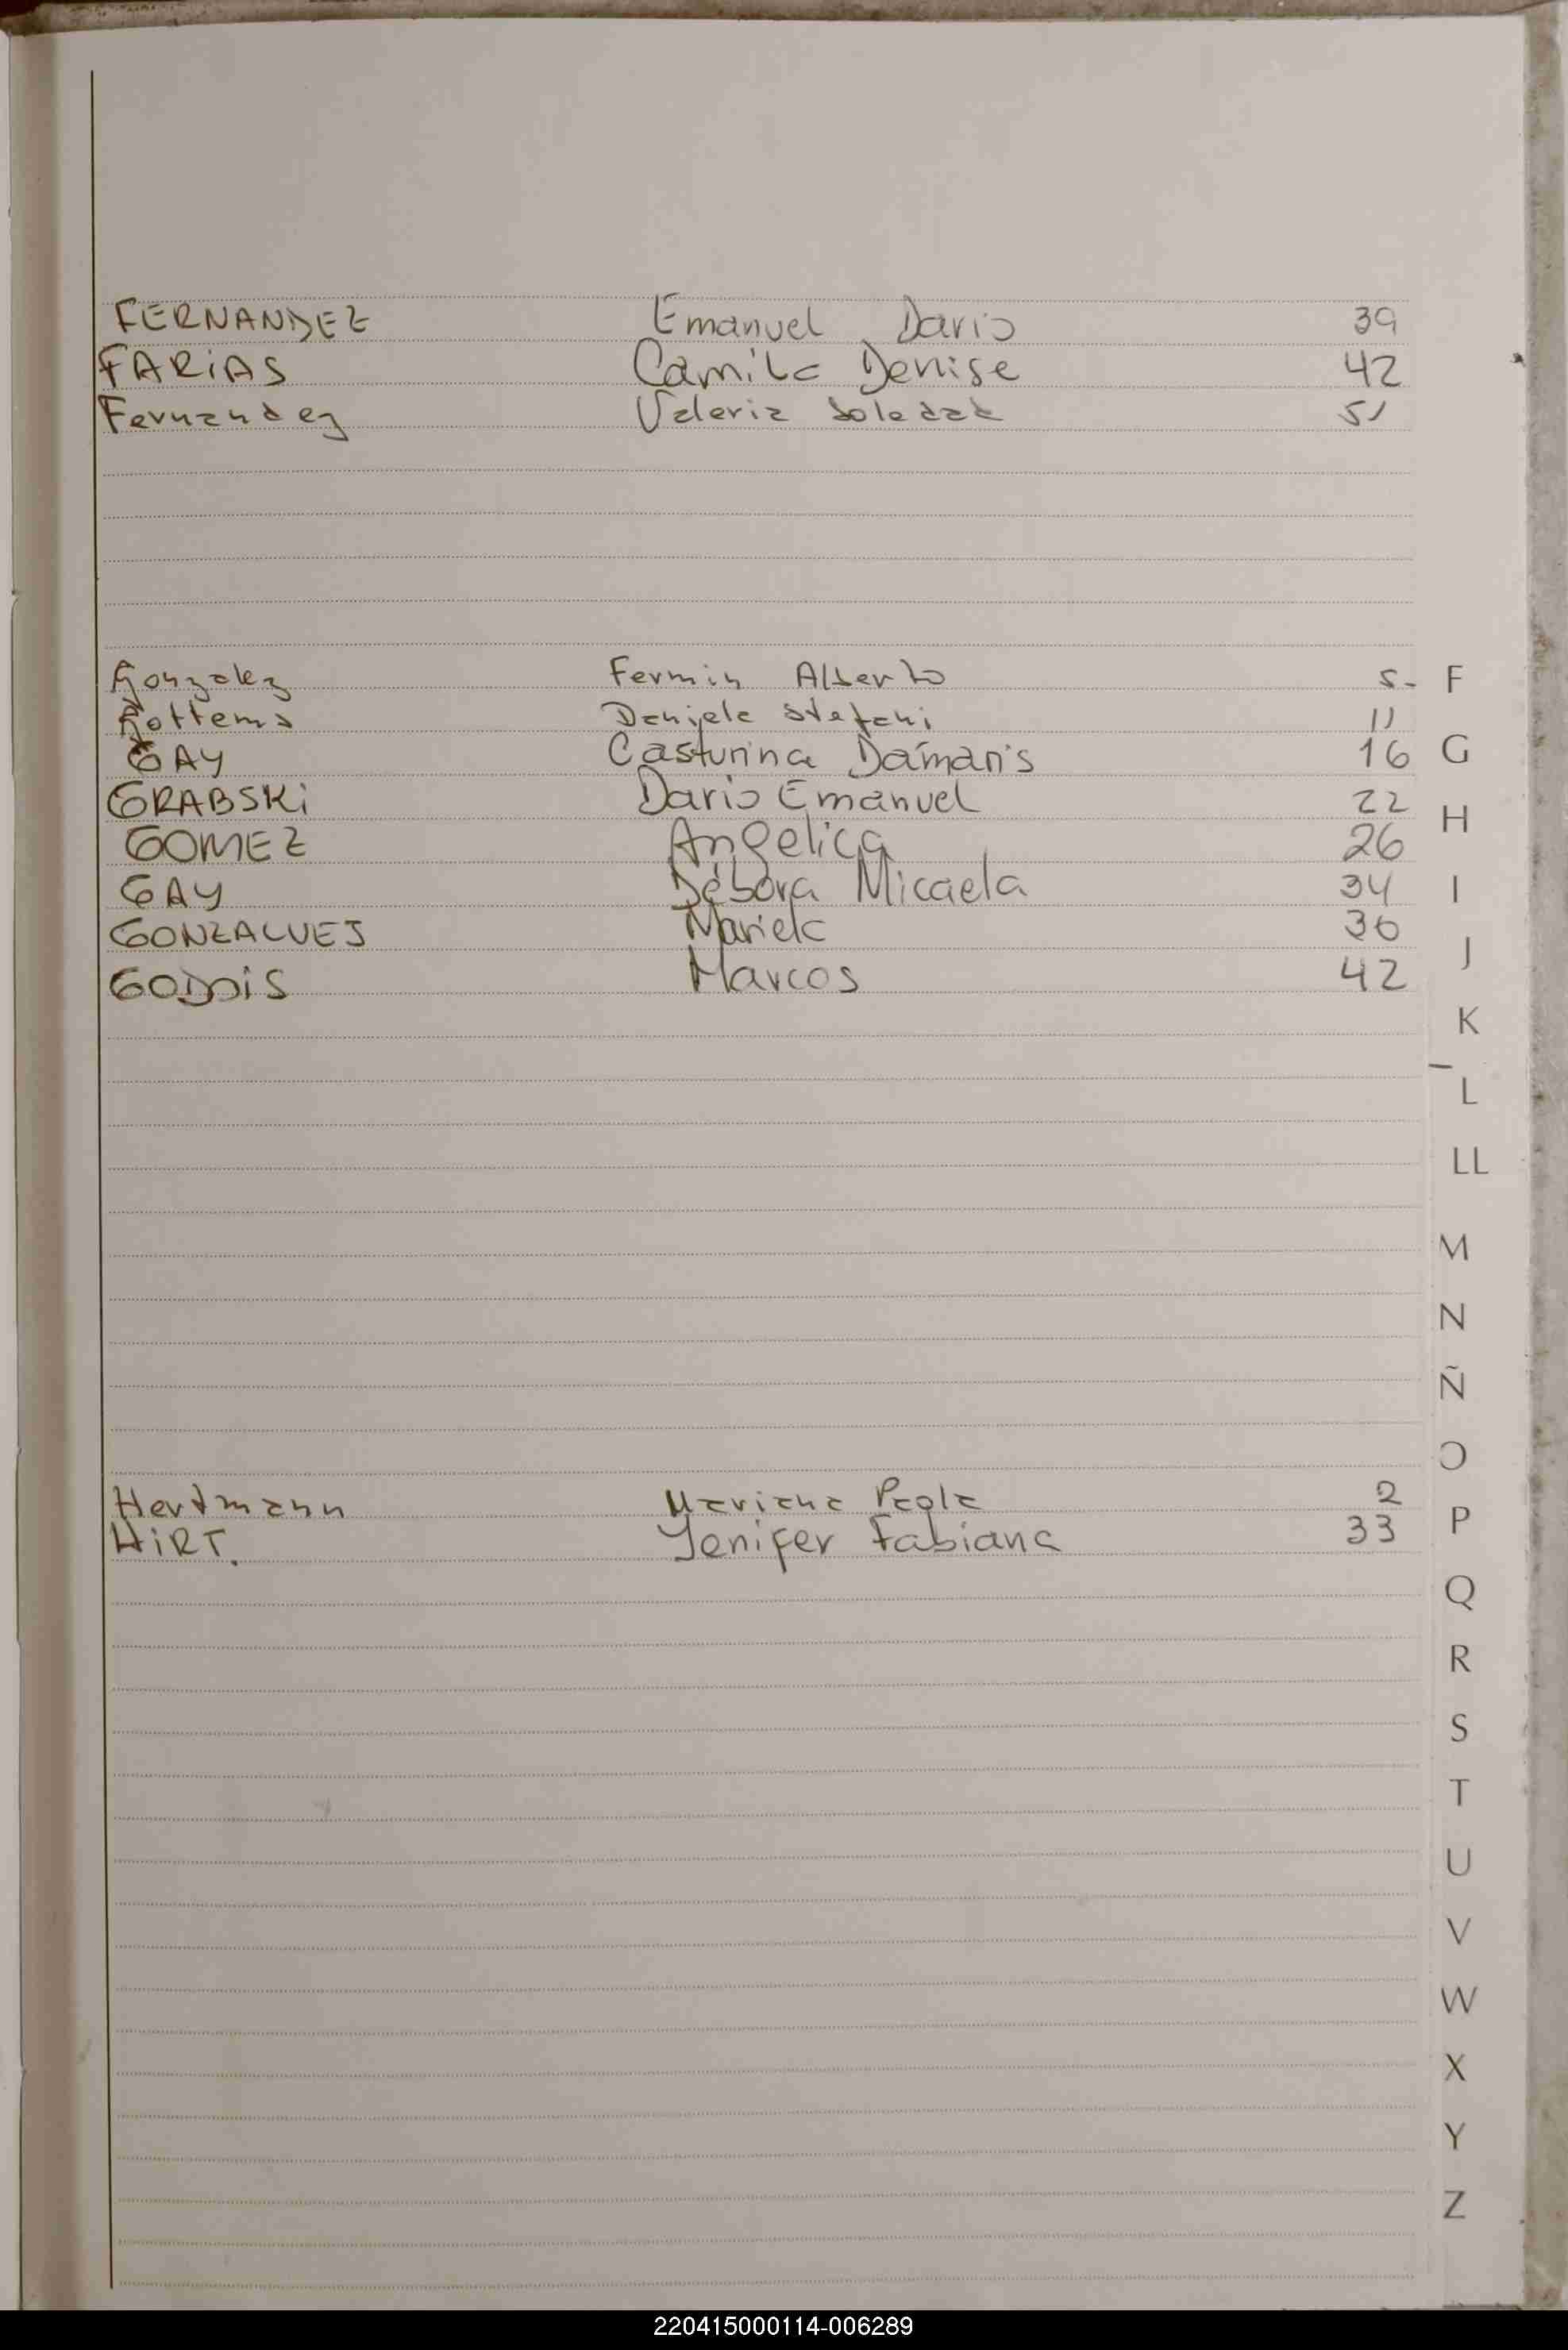 FERNANDEZ Emanuel Dario 39
FARIAS Camila Denise 42
Fernandez Valeria Soledad 51
Gonzalez Fermin Alberto 5- F
Gottems Daniela Stefani 11
GAY Casturina Dámaris 16 G
GRABSKI Dario Emanuel 22
GOMEZ Angelica 26 H
GAY Débora Micaela 34 I
GONZALVES Mariela 36
GODOIS Marcos 42 J
K
L
LL
M
N
Ñ
O
Hertmann Mariana Paola 2 P
HIRT. Yenifer Fabiana 33
Q
R
S
T
U
V
W
X
Y
Z
220415000114-006289